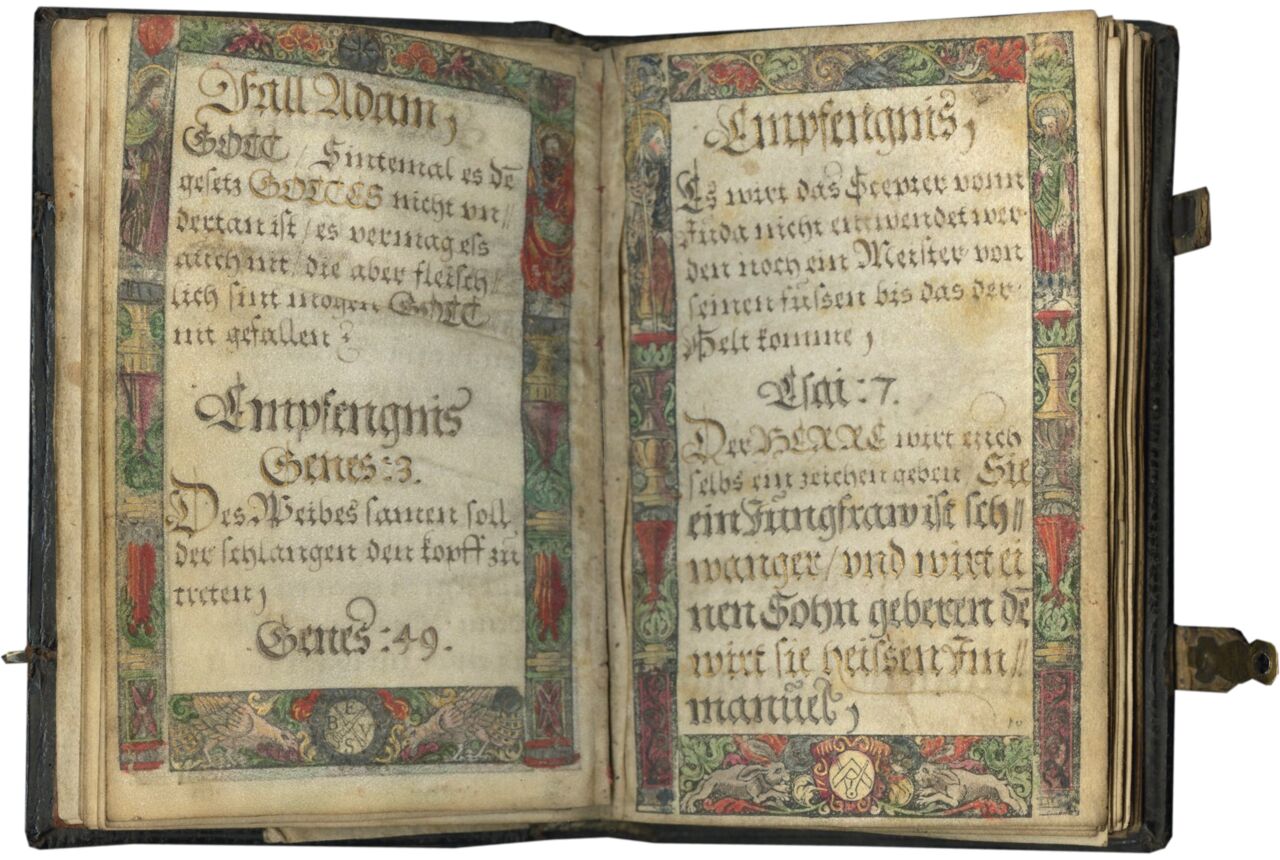 Fall Adam,
GOTT / Sintemal es dē
gesetz GOTTES nicht vn//
dertan ist / es vermag ess
auch nit / die aber fleisch//
lich sint mogen GOTT
nit gefallen
Empfengnis
Genes: 3.
Des Weibes samen soll
der schlangen den kopff zu
treten,
Genes: 49.
Empfengnis,
Es wirt das Scepter vonn
Juda nicht entwendet wer-
den noch ein Meister von
seinen füssen bis das der
Helt komme,
Esai: 7.
Der HERRE wirt euch
selbs ein zeichen geben Sie
ein Jungfraw ist sch//
wanger / vnd wirt ei
nen Sohn geberen dē
wirt sie heissen Im//
manuel,